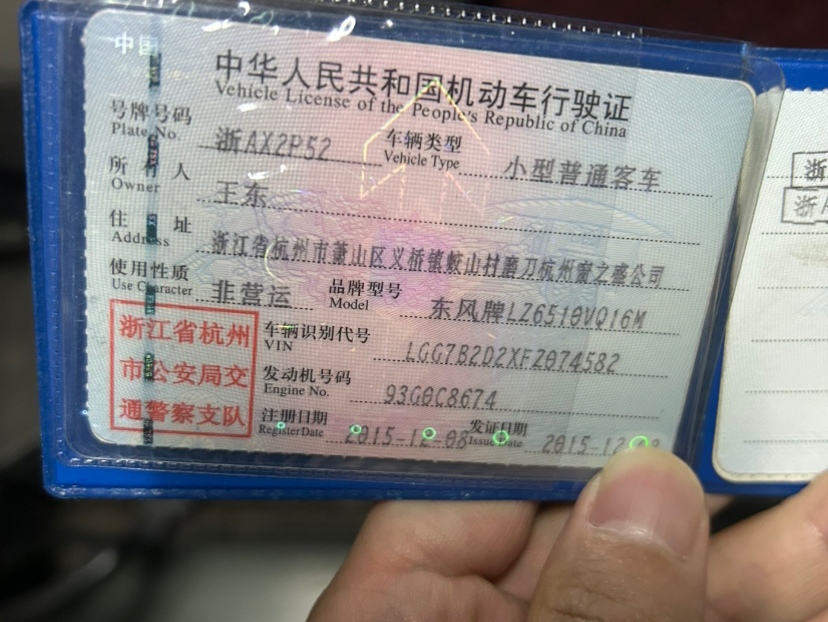 中国
中华人民共和国机动车行驶证
Vehicle License of the People's Republic of China
号牌号码 浙AX2P52 车辆类型 小型普通客车
Plate No. Vehicle Type
所有人 王东
Owner
住址 浙江省杭州市萧山区义桥镇 山村磨刀杭州 之盛公司
Address
使用性质 非营运 品牌型号 东风牌LZ6510VQ16M
Use Character Model
浙江省杭州市公安局交通警察支队
车辆识别代号 LGG7B2D2XFZ074582
VIN
发动机号码 93G0C8674
Engine No.
注册日期 2015-12-08 发证日期 2015-12- 8
Register Date Issue Date
浙
浙A